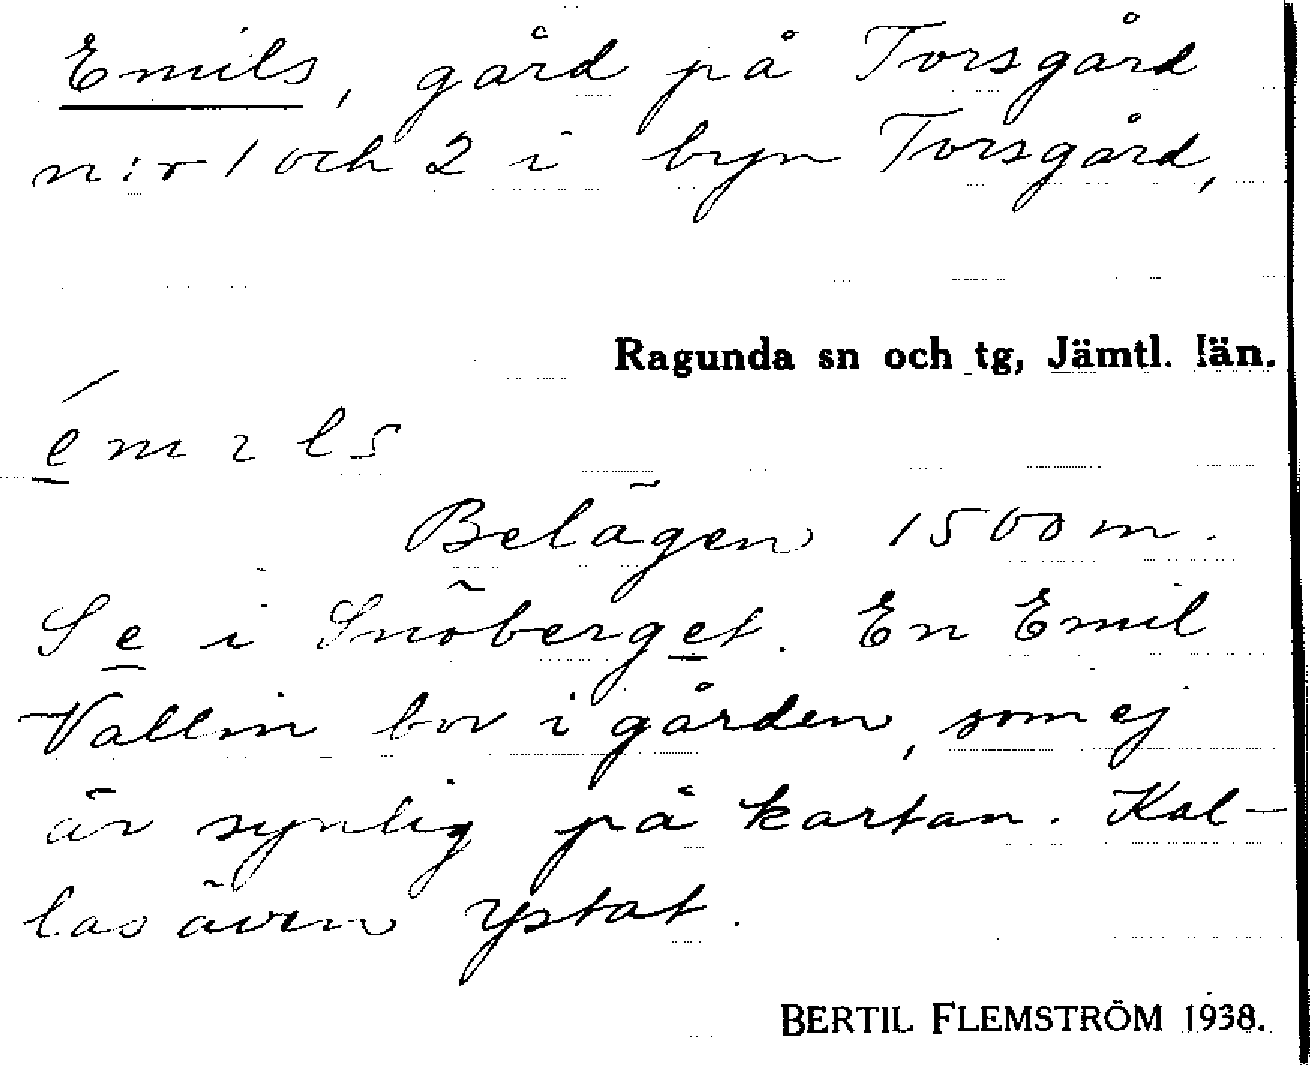 Emils, gård på Torsgård
n:r 1 och 2 i byn Torsgård,
Ragunda sn och tg, Jämtl. län.
émıls
Belägen 1500 m.
Se i Snöberget. En Emil
Vallin bor i gården, som ej
är synlig på kartan. Kal-
las även Ystat.
BERTIL FLEMSTRÖM 1938.